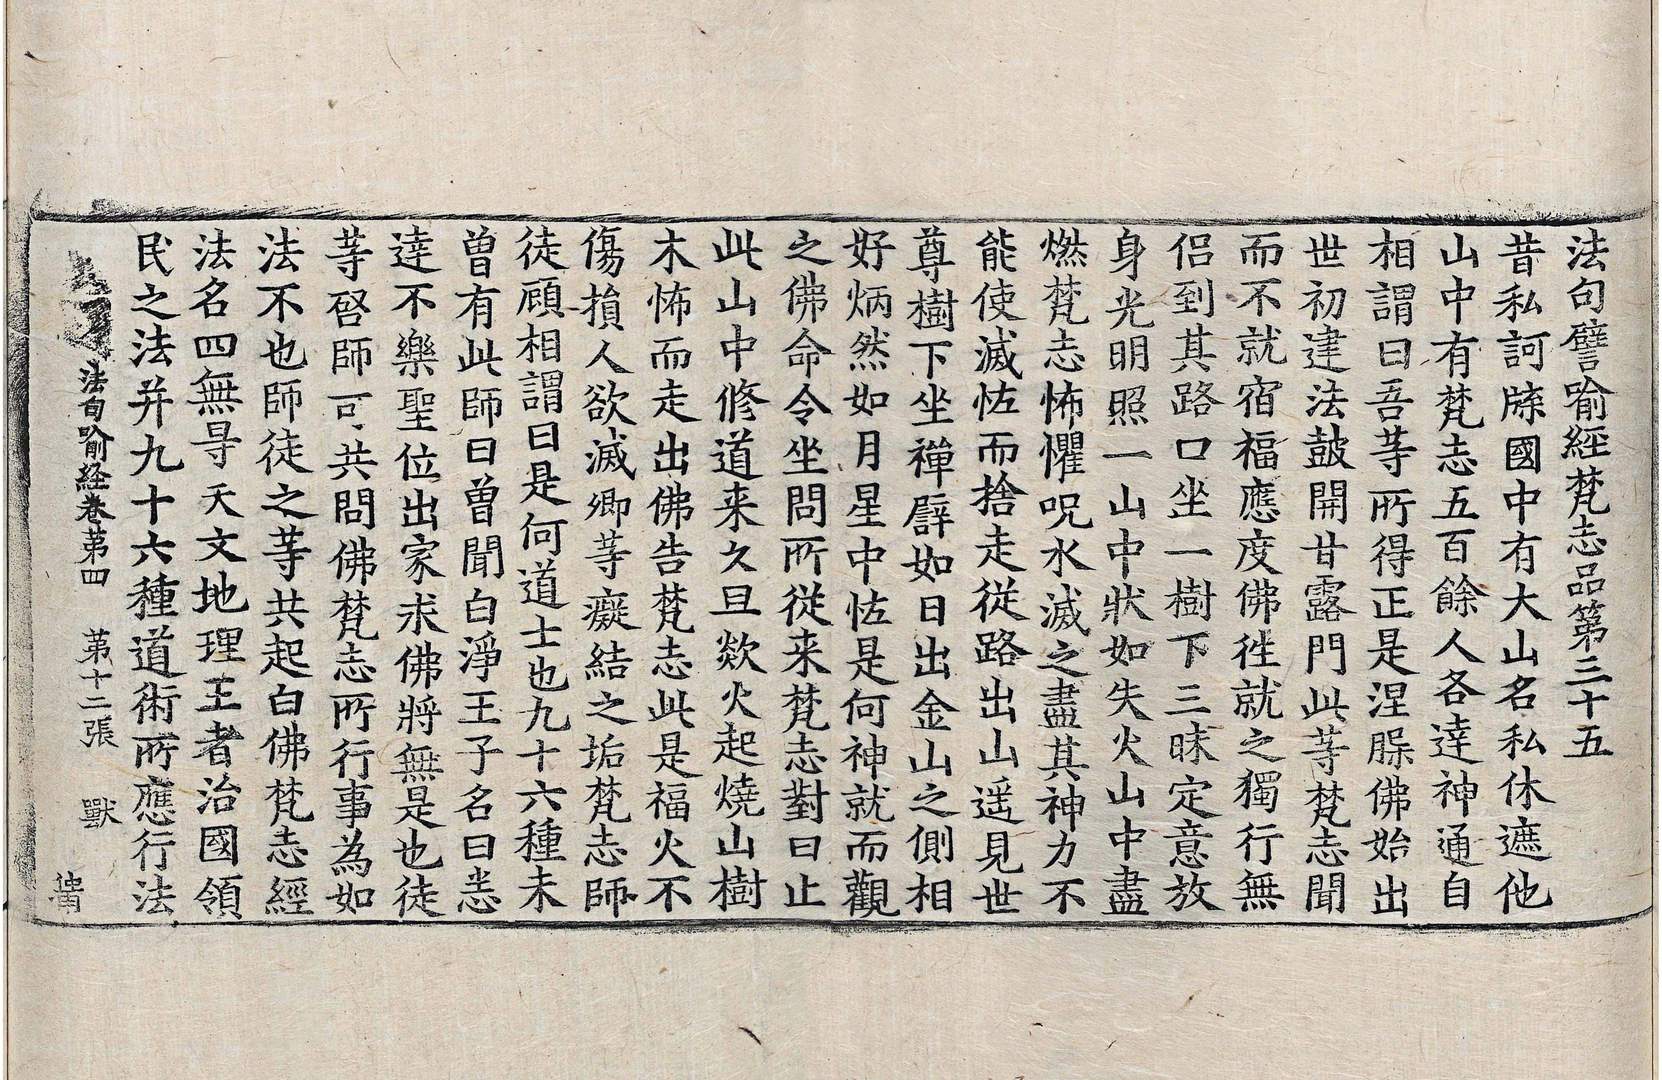 法句譬喻經梵志品第三十五
昔私訶牒國中有大山名私休遮他
山中有梵志五百餘人各達神通自
相謂曰吾等所得正是涅脲佛始出
世初建法鼓開甘露門此等梵志聞
而不就宿福應度佛徃就之獨行無
侶到其路口坐一樹下三昧定意放
身光明照一山中狀如失火山中盡
燃梵志怖懼呪水滅之盡其神力不
能使滅怪而捨走從路出山遥見世
尊樹下坐禪譬如日出金山之側相
好炳然如月星中怪是何神就而觀
之佛命令坐問所從来梵志對曰止
此山中修道来久旦欻火起燒山樹
木怖而走出佛告梵志此是福火不
傷損人欲滅卿等癡結之垢梵志師
徒顧相謂曰是何道士也九十六種未
曾有此師曰曾聞白淨王子名曰悉
達不樂聖位出家求佛將無是也徒
等啓師可共問佛梵志所行事為如
法不也師徒之等共起白佛梵志經
法名四無㝵天文地理王者治國領
民之法并九十六種道術所應行法
法句喻経卷第四 第十二張 獸